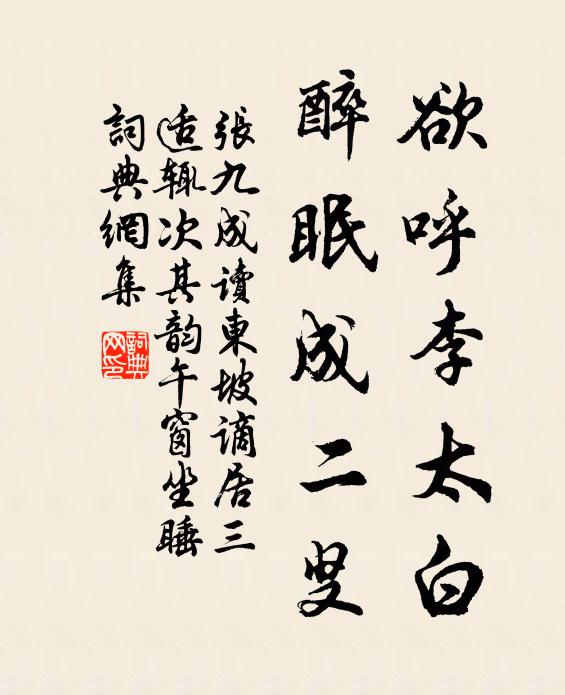 欲呼李太白
醉眠成二叟
張九成讀東坡謫居三
适辄次其韵午窗坐睡
詞典網集
詞典网印